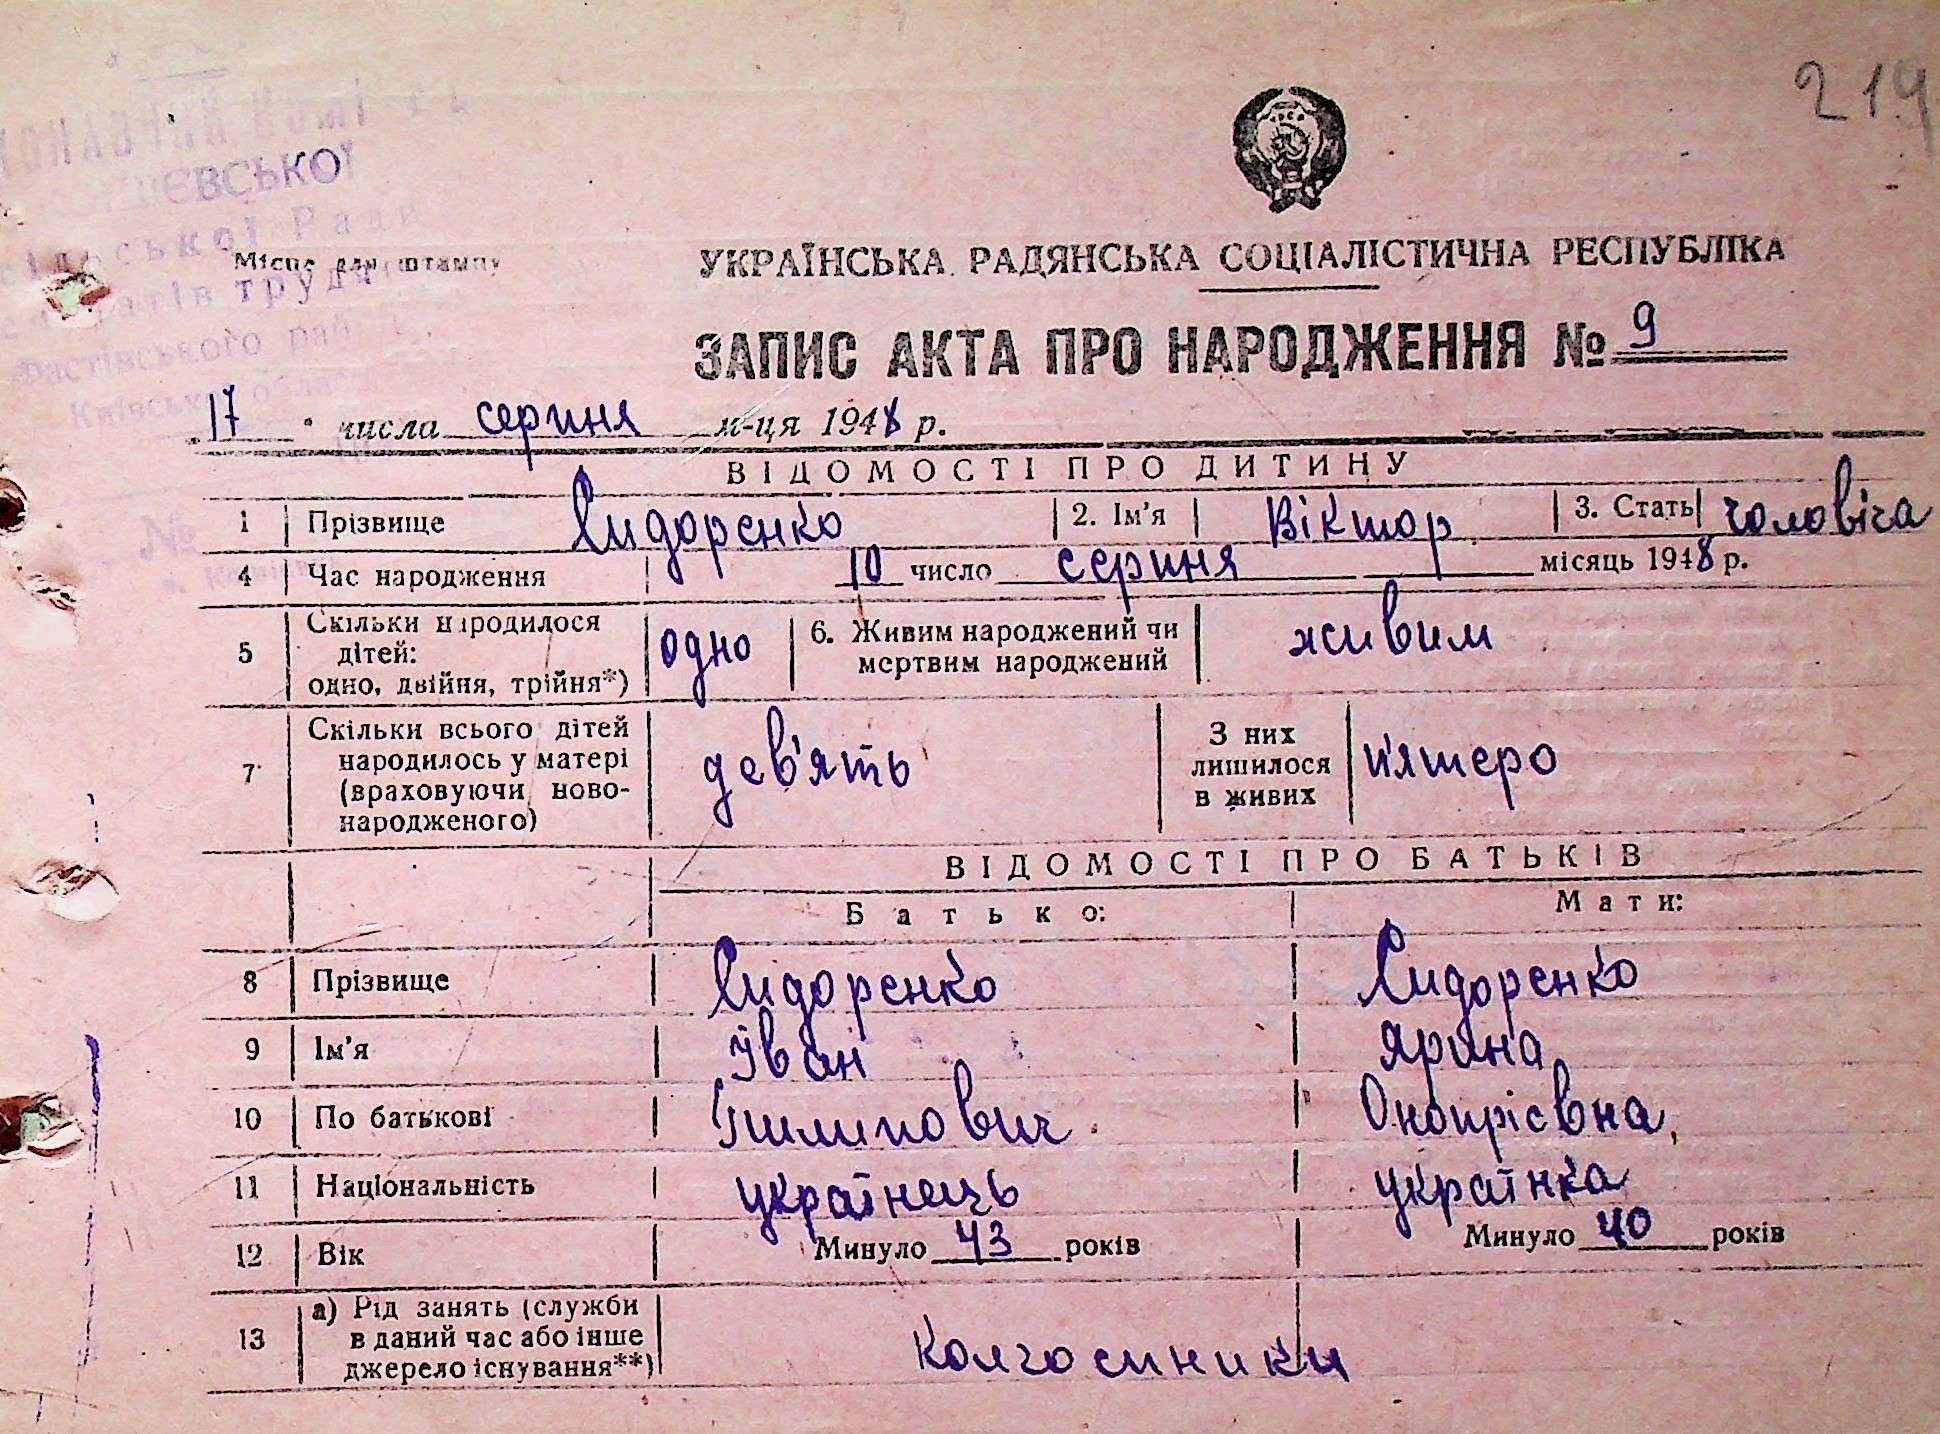 219
ЄВСЬКОЇ
сільської Ради
Місце для штампу
УКРАЇНСЬКА РАДЯНСЬКА СОЦІАЛІСТИЧНА РЕСПУБЛІКА
Фастівського
ЗАПИС АКТА ПРО НАРОДЖЕННЯ № 9
17 числа серпня м-ця 1948 р.
ВІДОМОСТІ ПРО ДИТИНУ
1 Прізвище Сидоренко 2. Ім'я Віктор 3. Стать чоловіча
4 Час народження 10 число серпня місяць 1948 р.
5 Скільки народилося дітей: одно, двійня, трійня*) одно 6. Живим народжений чи мертвим народжений живим
7 Скільки всього дітей народилось у матері (враховуючи ново-народженого) дев'ять З них лишилося в живих п'ятеро
ВІДОМОСТІ ПРО БАТЬКІВ
Батько: Мати:
8 Прізвище Сидоренко Сидоренко
9 Ім'я Іван Ярина
10 По батькові Пилипович Онопрієвна
11 Національність українець українка
12 Вік Минуло 43 років Минуло 40 років
13 а) Рід занять (служби в даний час або інше джерело існування**) Колгоспники